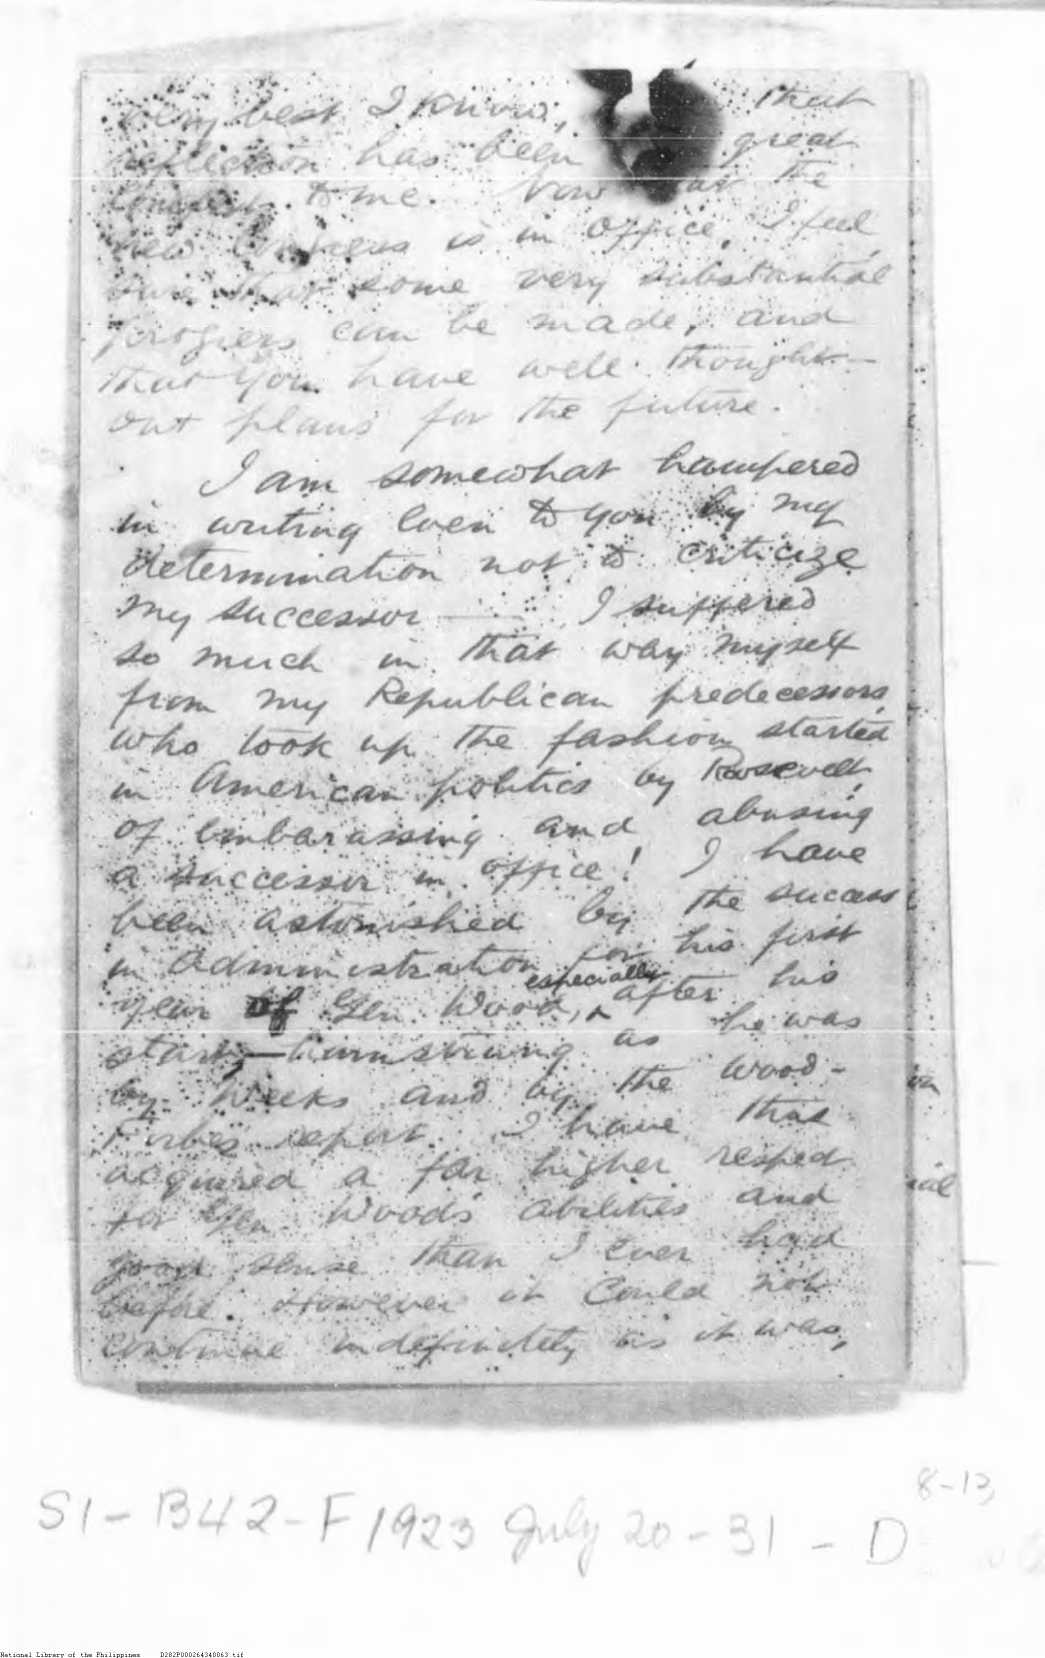 very best I know, that
reflection has been great
comfort to me. Now that the
new Congress is in office, I feel
sure that some very substantial
progress can be made, and
that you have well thought
out plans for the future.
I am somewhat hampered
in writing even to you by my
determination not to criticize
my successor — I suffered
so much in that way myself
from my Republican predecessors
who took up the fashion started
in American politics by Roosevelt
of embarassing and abusing
a successor in office! I have
been astonished by the success
in administration for his first
year of Gen. Wood, especially after his
start, — hamstrung as he was
by Weeks and by the Wood-
Forbes report. I have thus
acquired a far higher respect
for Gen. Wood's abilities and
good sense than I ever had
before. However it could not
continue indefinitely as it was,
on
ial
8-13
S1-B42-F1923 July 20-31-D
National Library of the Philippines D282P000264340063.tif